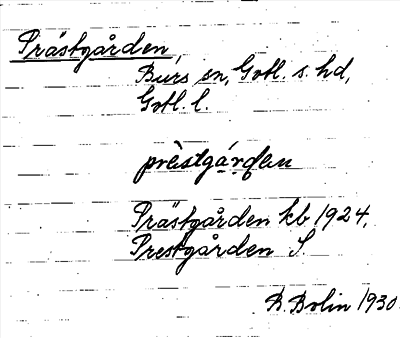 Prästgården,
Burs sn, Gotl. s. hd,
Gotl. l.
prèstgárden
Prästgården kb 1924.
Prestgården S
B. Bolin 1930.